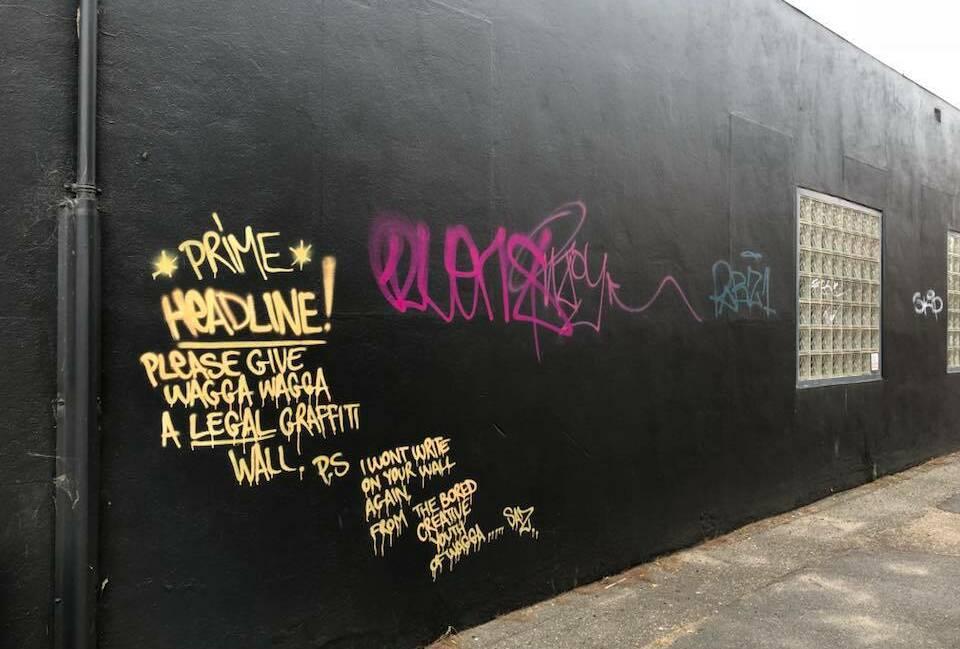 PRIME
HEADLINE!
PLEASE GIVE
WAGGA WAGGA
A LEGAL GRAFFITI
WALL. P.S
I WONT WRITE
ON YOUR WALL
AGAIN.
FROM THE BORED
CREATIVE
YOUTH
OF WAGGA..... SAZ..